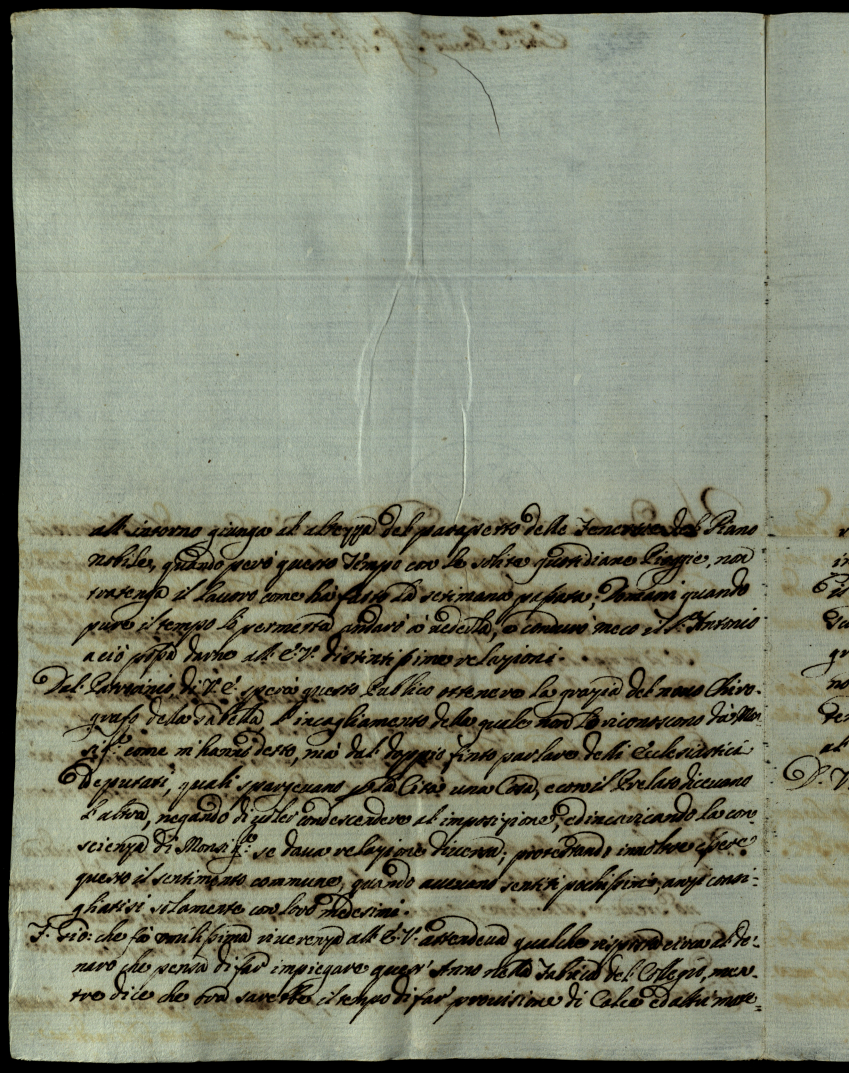 all'intorno giunga al altezza del parapetto delle Fenestre del Piano
nobile, quando però questo Tempo con le solite quotidiane Pioggie, non
tratenga il lauoro come ha fatto la setimana passata; Domani quando
pure il tempo lo permetta andarò à vederla, e condurò meco il S.r Antonio
acciò possa darne all'E.V. distintissime relazioni.
Dal Patrocinio di V.E. spera questo Publico ottenere la grazia del nouo Chiro-
grafo della Gabella l'incagliamento della quale non lo riconoscono da Mon
Sig.re come m'hanno detto, mà dal doppio finto parlare delli Ecclesiastici
Deputati, quali spargeuano p la Città una Cosa, e con il Prelato diceuano
l'altra, negando di uoler condescendere al imposizione, ed incaricando la con
scienza di Monsig.re se daua relazione diuersa; protestando innoltre essere
questo il sentimento commune, quando aueuano sentiti pochissimi, anzi consi-
gliatisi solamente con loro medesimi.
che fà umilissima riuerenza all'E.V. attendeua qualche risposta circa al de-
naro che pensa di far impiegare quest'Anno nella Fabrica del Collegio, men-
tre dice che ora sarebbe il tempo di far prouisione di Calce ed altri mate-